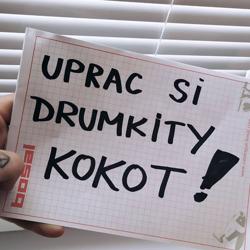 UPRAC SI
DRUMKITY
KOKOT!
bosal